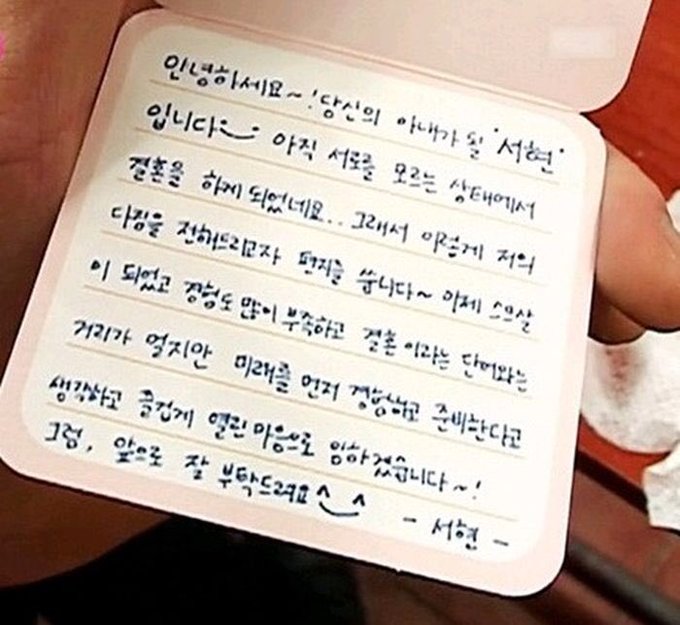 안녕하세요~! 당신의 아내가 될 "서현"
입니다 아직 서로를 모르는 상태에서
결혼을 하게 되었네요.. 그래서 이렇게 저의
다짐을 전해드리고자 편지를 씁니다~ 이제 스므살
이 되었고 경험도 많이 부족하고 결혼이라는 단어와는
거리가 멀지만 미래를 먼저 경험하고 준비한다고
생각하고 즐겁게 열린마음으로 임하겠습니다~!
그럼, 앞으로 잘 부탁드려요^_^ - 서현 -